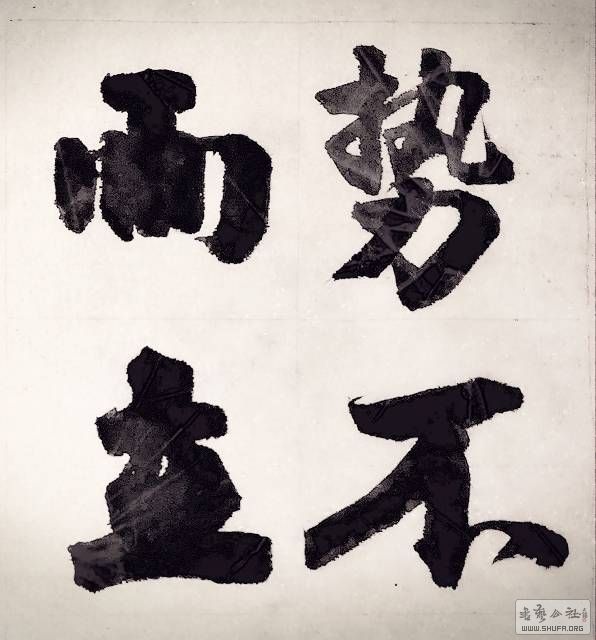 势不
两立
书艺公社
WWW.SHUFA.ORG